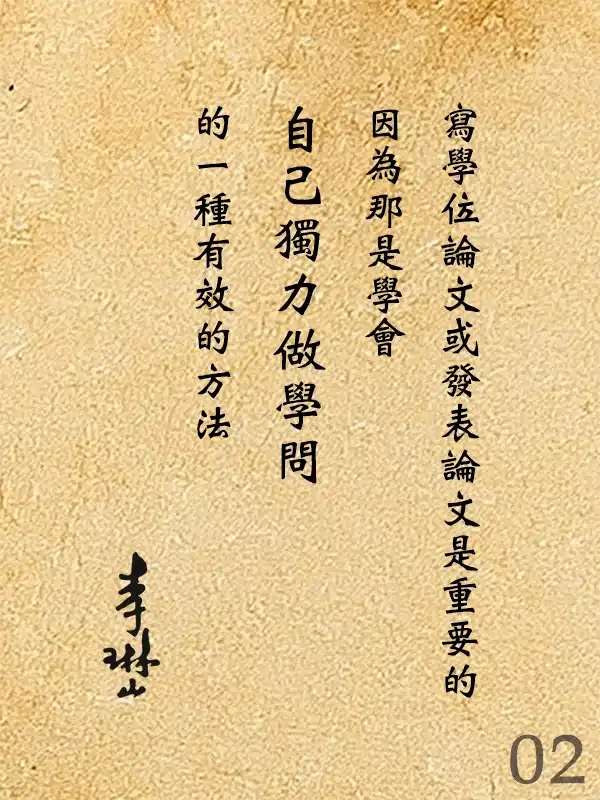 寫學位論文或發表論文是重要的
因為那是學會
自己獨力做學問
的一種有效的方法
李琳山
02